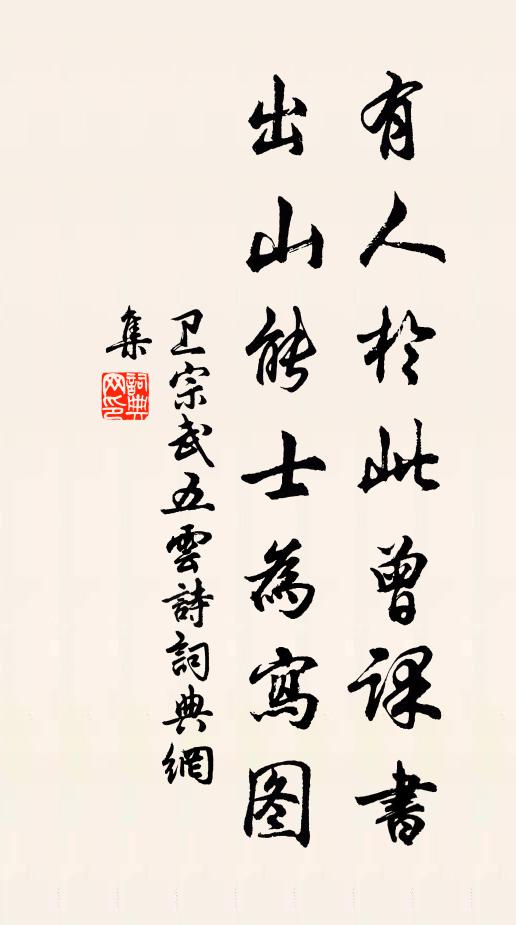 有人於此曾课書
出山能士為寫图
卫宗武五雲詩詞典網
集
詞典网印